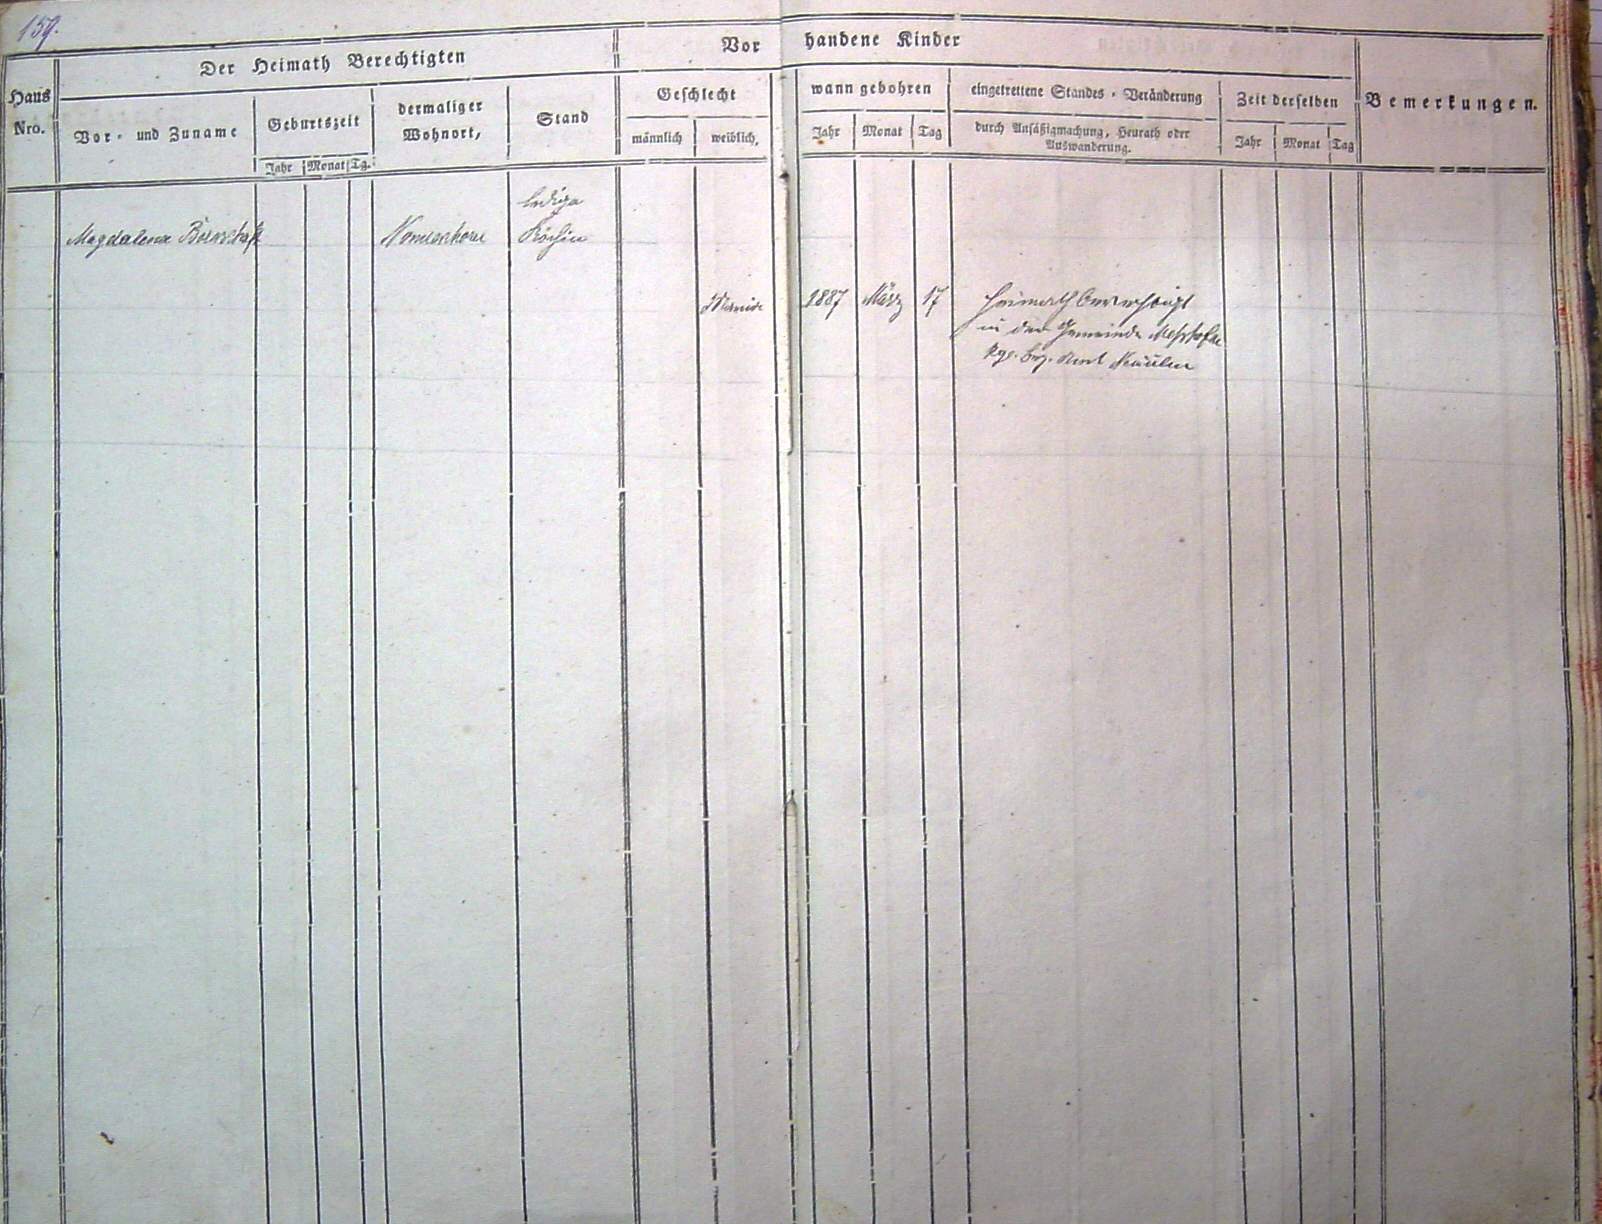 159.
Der Heimath Berechtigten
Vorhandene Kinder
Haus Nro.
Vor- und Zuname
Geburtszeit
Jahr Monat Tg.
dermaliger Wohnort,
Stand
Geschlecht
männlich weiblich,
wann gebohren
Jahr Monat Tag
eingetrettene Standes-Veränderung
durch Ansäßigmachung, Heurath oder
Auswanderung.
Zeit derselben
Jahr Monat Tag
Bemerkungen.
ledige
Magdalena Köchin
1887 März 17
in der Gemeinde
kgl. Bez. Amt